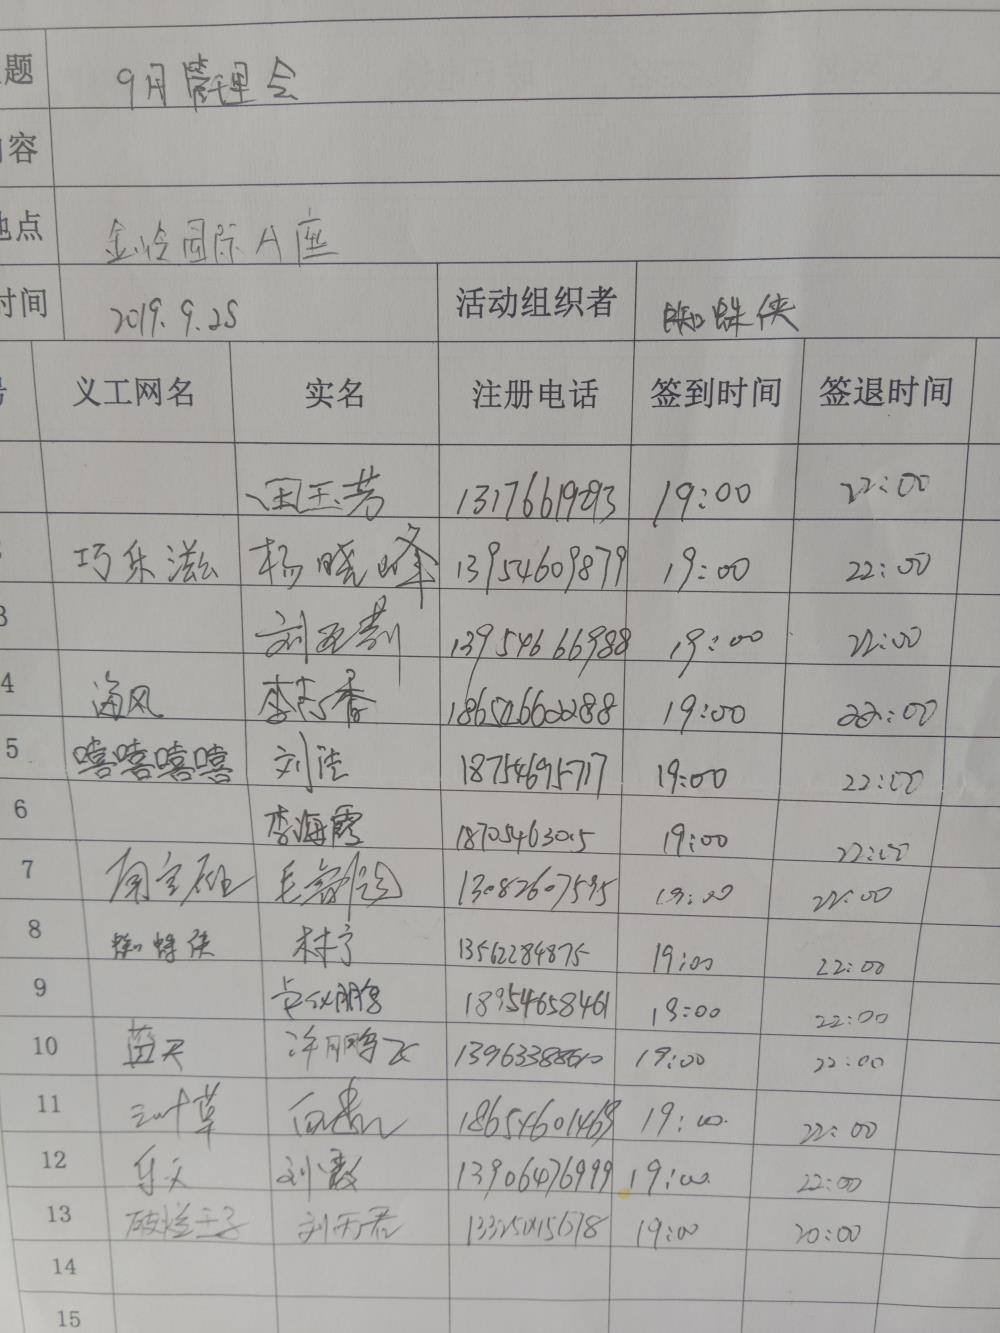 题 9月管理会
容
地点 金岭国际A座
时间 2019.9.28 活动组织者 蜘蛛侠
号 义工网名 实名 注册电话 签到时间 签退时间
田玉芳 13176619293 19:00 22:00
巧乐滋 杨晓峰 13954609879 19:00 22:00
3 13954666988 19:00 22:00
4 海风 李秀香 18654660288 19:00 22:00
5 嘻嘻嘻嘻 刘洁 18754695717 19:00 22:00
6 李海霞 18705463015 19:00 22:00
7 13082607595 19:00 22:00
8 蜘蛛侠 林宁 13562284875 19:00 22:00
9 18954658461 19:00 22:00
10 蓝天 许鹏飞 19:00 22:00
11 三叶草 18654601469 19:00 22:00
12 乐天 刘敏 13906476999 19:00 22:00
13 19:00 20:00
14
15